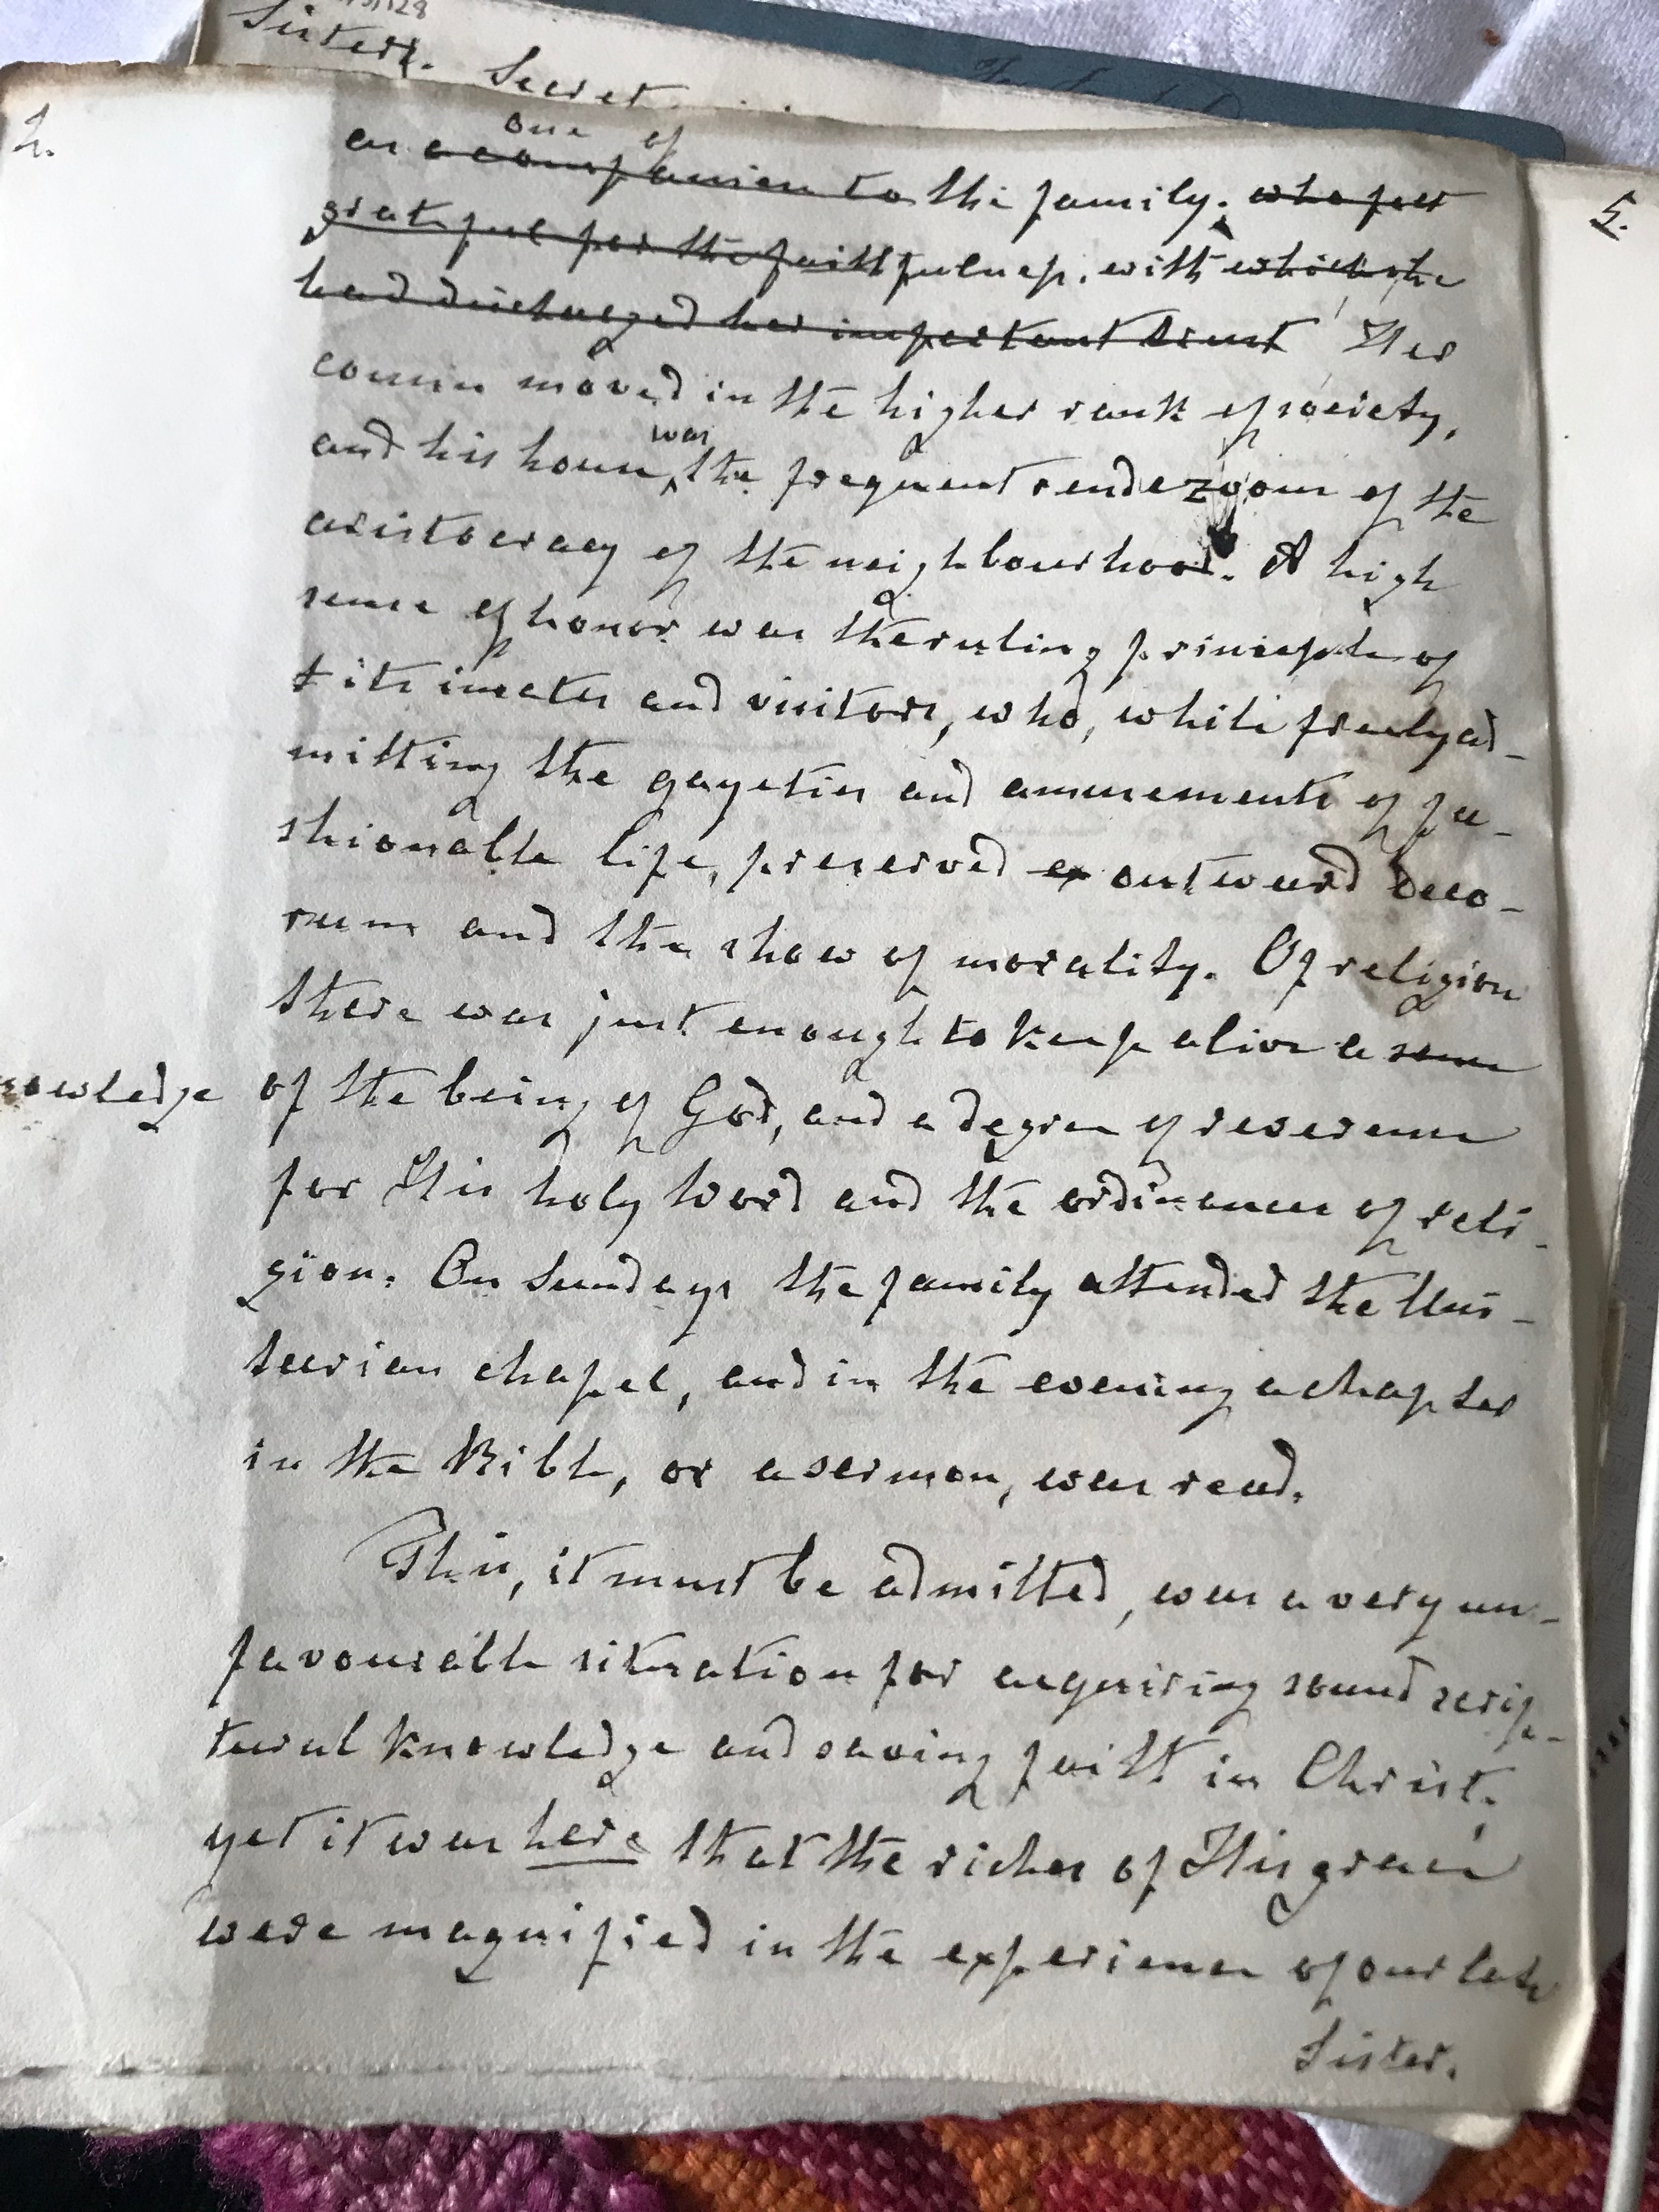 Sisters. Secret
2.
5.
one of
as a companion to the family. who felt
grateful for the faithfulness. with which she
had discharged her important trust Her
cousin moved in the higher rank of society,
was
and his house, the frequent rendezvous of the
aristocracy of the neighbourhood. A high
sense of honor was the ruling principle of
its inmates and visitors, who, while freely ad-
mitting the gayeties and amusements of fa-
shionable life, preserved outward deco-
rum and the show of morality. Of religion
there was just enough to keep alive a sense
nowledge of the being of God, and a degree of reverence
for His holy Word and the ordinances of reli-
gion. On Sundays the family attended the Uni-
tarian chapel, and in the evening a chapter
in the Bible, or a sermon, was read.
This, it must be admitted, was a very un-
favourable situation for acquiring sound scrip-
tural knowledge and saving faith in Christ,
yet it was here that the riches of His grace
were magnified in the experience of our late
Sister.